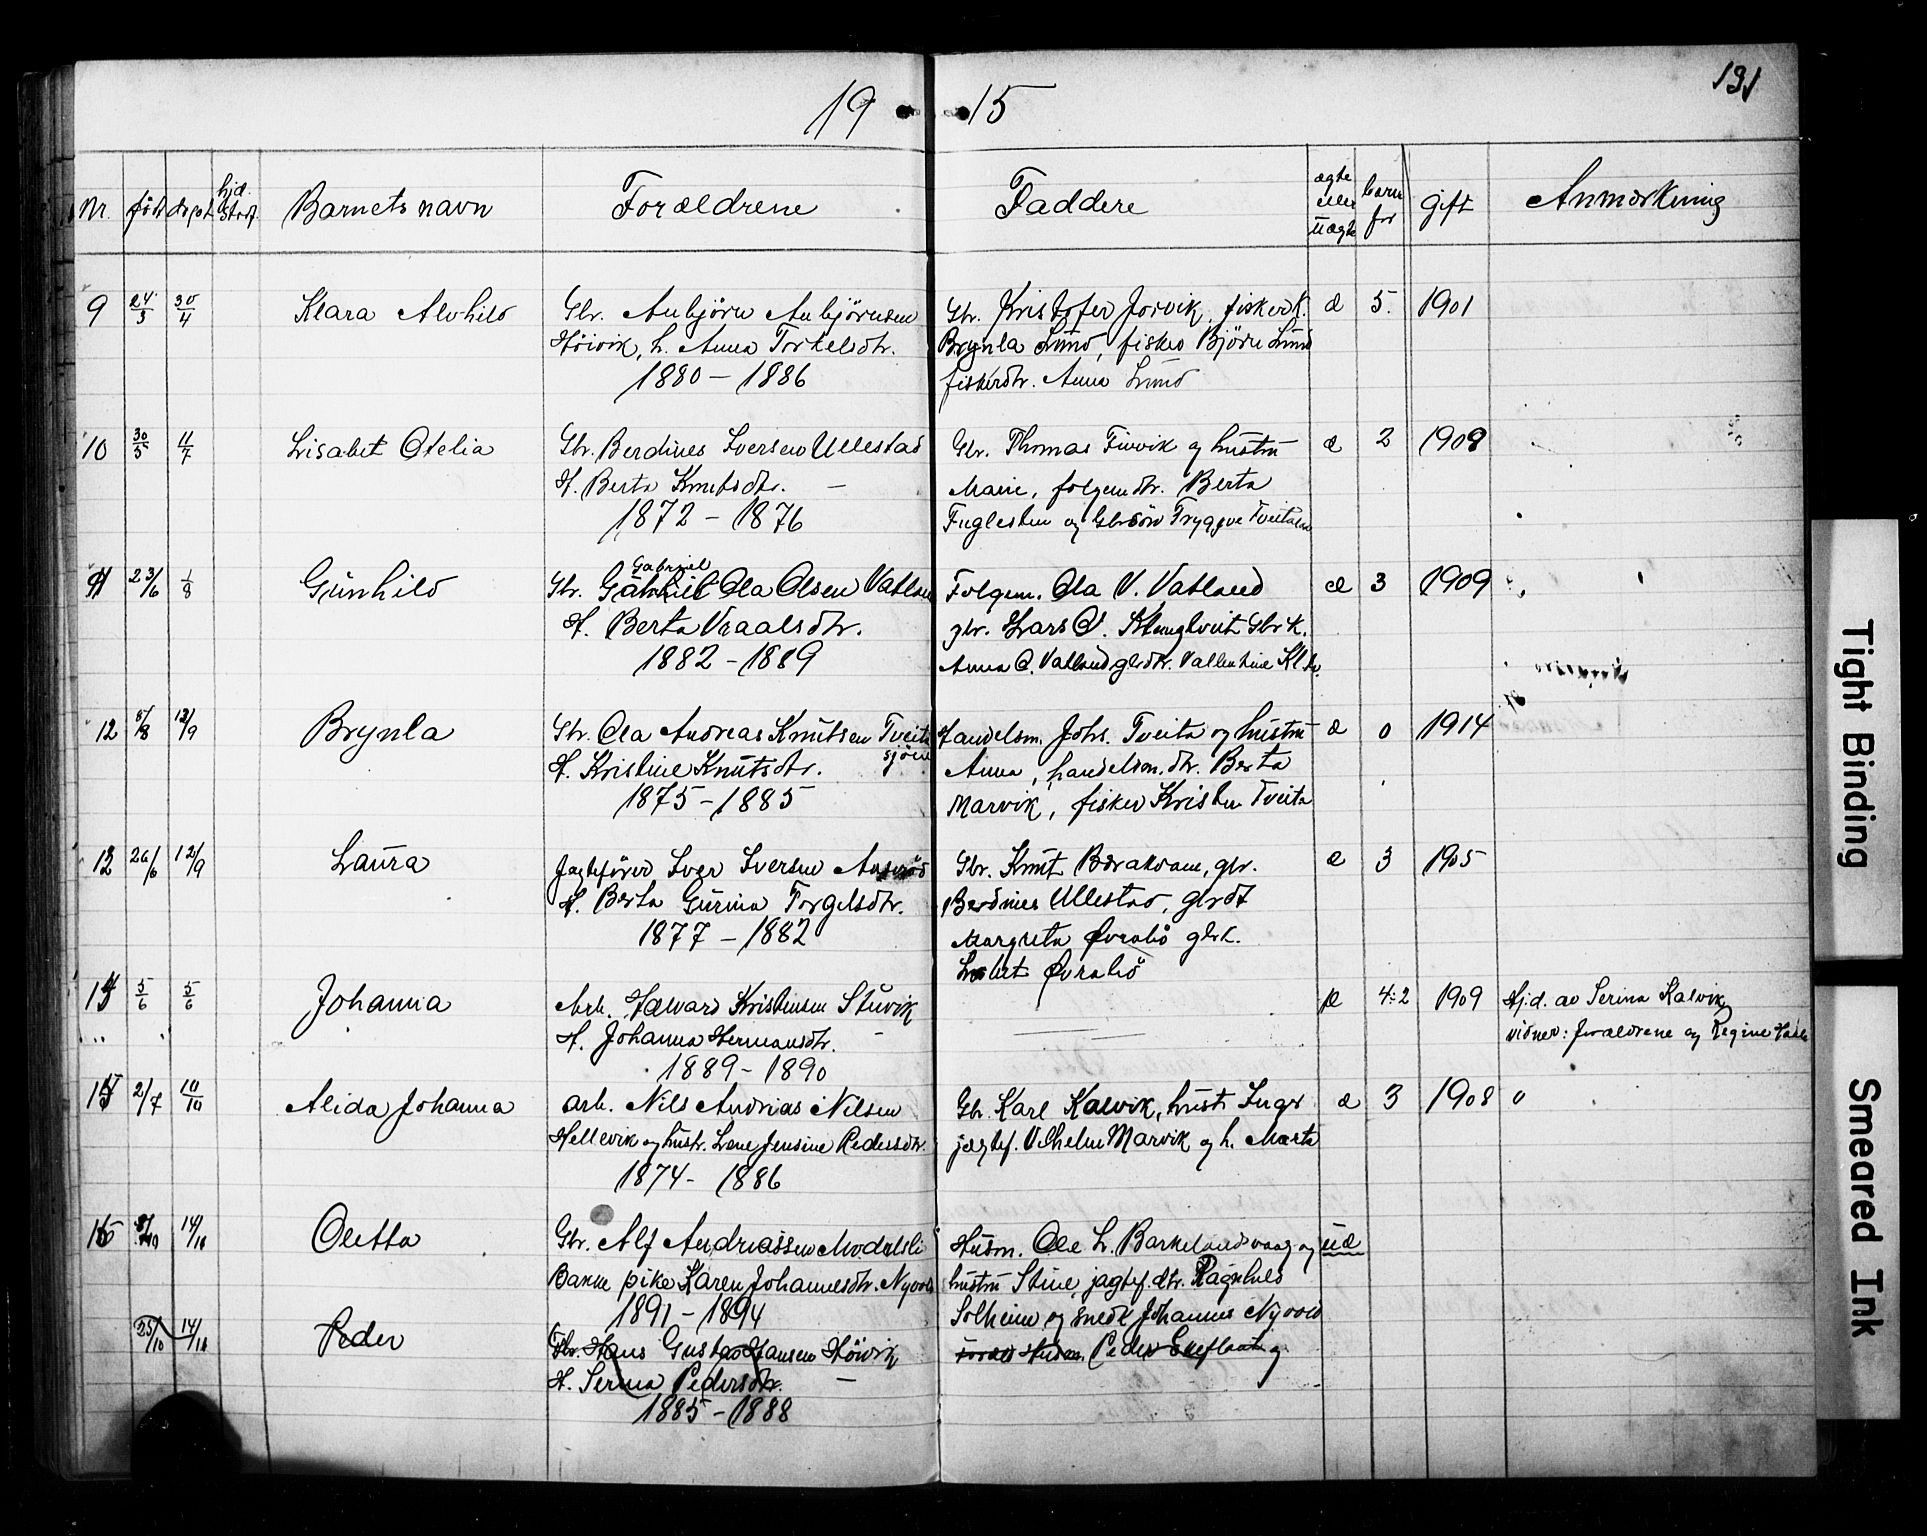 19 15
131
Nr. født døpt hjd. Barnets navn Forældrene Faddere ægte eller uægte barn for gift Anmærkning
9 24/3 30/4 Klara Alvhild
Gbr. Anbjörn Anbjörnsen
Höivik, h. Anna Torkelsdtr.
1880 – 1886
Gbr. Kristofer Jorvik, fiskerk.
Brynla Lund, fisker Björn Lund
fiskerdtr. Anna Lund
æ 5. 1901
10 30/5 11/7 Lisabet Otelia
Gbr. Berdines Iversen Ullestad
H. Berta Knutsdtr. –
1872 – 1876
Gbr. Thomas Finvik og hustru
Marie, folgemdtr. Berta
Fuglesten og Gbrsön Tryggve Tveitane
æ 2 1908
11 23/6 1/8 Gunhild
Gabriel
Gbr. Gabriel Ola Olsen Vatland
H. Berta Vraalsdtr.
1882 – 1889
Folgem. Ola V. Vatland
gbr. Lars O. Klungtveit Gbrk.
Anna O. Vatland gbrdtr. Vallentine Kl.tv.
æ 3 1909
12 5/8 12/9 Brynla
Gbr. Ola Andreas Knutsen Tveita
sjöen
H. Kristine Knutsdtr.
1875 – 1885
Handelsm. Johs. Tveita og hustru
Anna, handelsm.dtr. Berta
Marvik, fisker Kristen Tveita
æ 0 1914
13 26/6 12/9 Laura
Jagtefører Iver Iversen
H. Berta Gurina Torgelsdtr.
1877 – 1882
Gbr. Knut Bærakvam, gbr.
Berdines Ullestad, gbrdt
Margreta Øvrabö gbrk.
Lisbet Øvrabö
æ 3 1905
14 5/6 5/6 Johanna
Arb. Hævard Kristensen Stuvik
H. Johanna Hermansdtr. –
1889 – 1890
æ 4:2 1909 Hjd. av Serina Kalvik
vidner: forældrene og Regine
15 2/7 10/10 Alida Johanna
arb. Nils Andrias Nilsen
Hellevik og hustr. Lene Jensine Pedersdtr.
1874 – 1886
Gbr. Karl Kalvik, hustr. Inger
jægtef. Vilhelm Marvik og h. Marta
æ 3 1908
16 14/10 Oletta
Gbr. Alf Andriassen Modalsli
Bakke pike Karen Johannesdtr. Nyvold
1891 – 1894
Husm. Ole L. Barkelandsvaag og
hustru Stine, jagtef.dtr. Ragnhild
Solheim og snedk Johannes Nyvold
uæ
25/10 14/11 Peder
Gbr. Hans Gustav Hansen Höivik
H. Serina Pedersdtr. –
1885 – 1888
Husm. Peder og
Tight Binding
Smeared Ink